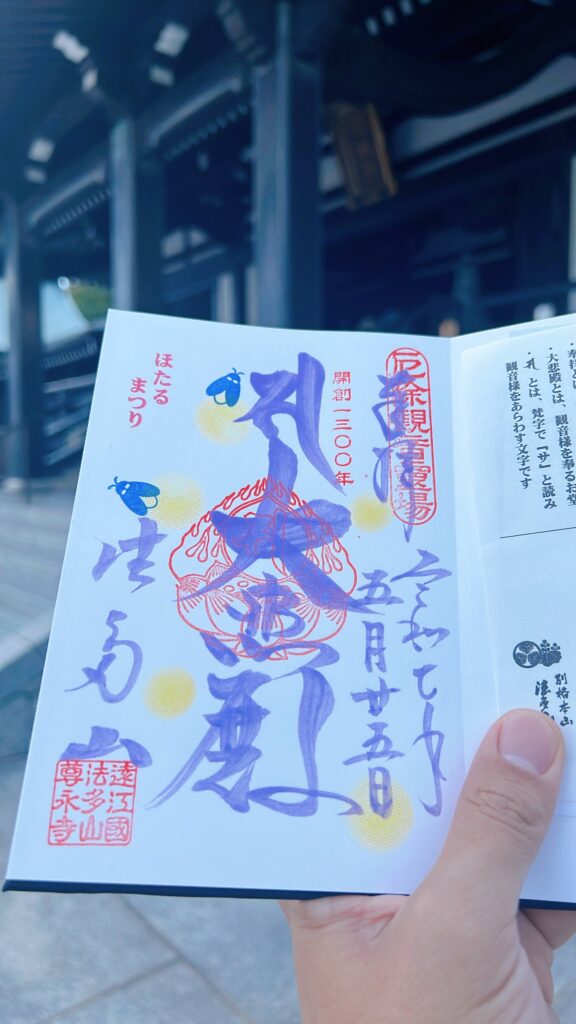 ・大悲殿とは、観音様を奉るお堂
とは、梵字で『サ』と読み
観音様をあらわす文字です
別格本山
奉拝
厄除観音霊場
令和七年
五月廿五日
開創一三〇〇年
大悲殿
ほたる
まつり
法多山
遠江國
法多山
尊永寺